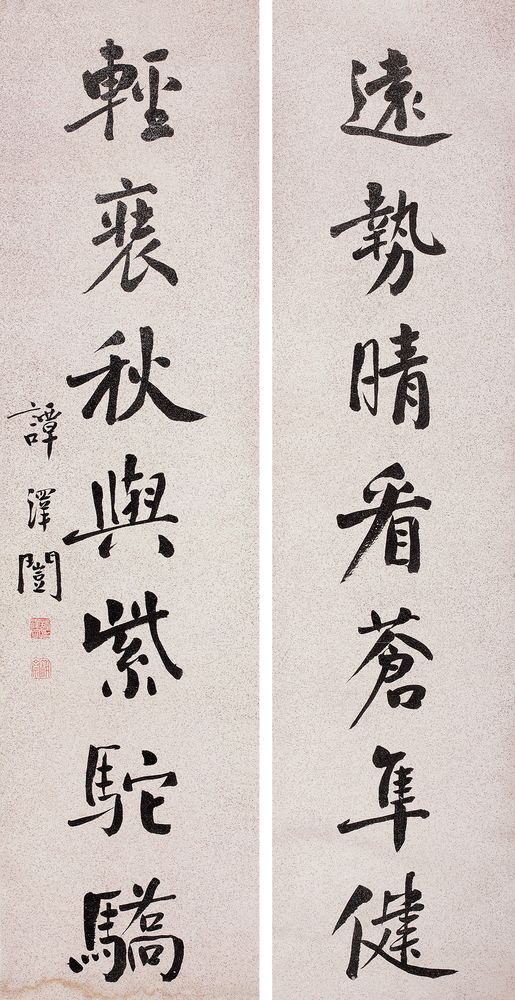 遠勢晴看蒼隼健
輕裘秋與紫駝驕
譚澤闓